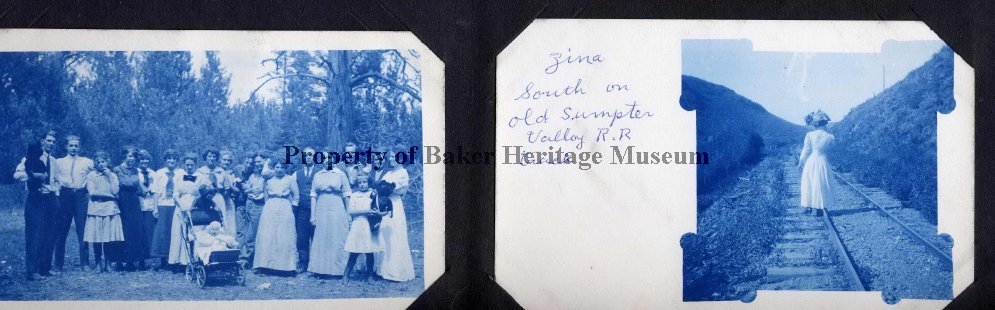 Zina
South on
old Sumpter
Valley R.R
Property of Baker Heritage Museum